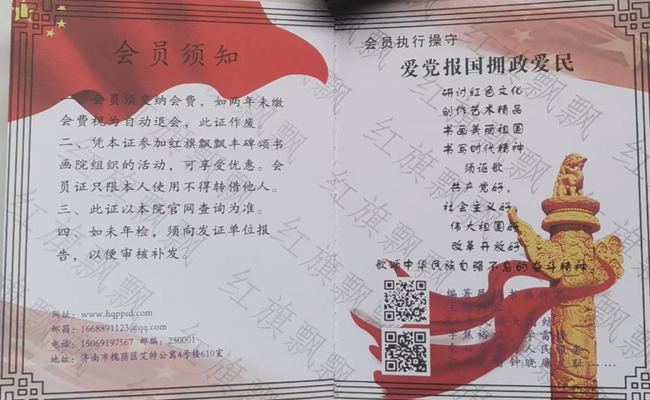 会员须知
一、会员须交纳会费，如两年未缴
会费视为自动退会，此证作废。
二、凭本证参加红旗飘飘丰碑颂书
画院组织的活动，可享受优惠。会
员证只限本人使用不得转借他人。
三、此证以本院官网查询为准。
四、如未年检，须向发证单位报
告，以便审核补发。
网址：www.hqppsd.com
邮箱：1668891123@qq.com
电话：15069197567 邮编：250001
地址：济南市槐荫区艾特公寓4号楼610室
会员执行操守
爱党报国拥政爱民
研讨红色文化
创作艺术精品
书画美丽祖国
书写时代精神
须讴歌
共产党好，
社会主义好
伟大祖国好
改革开放好
歌颂中华民族自强不息的奋斗精神
红旗飘飘